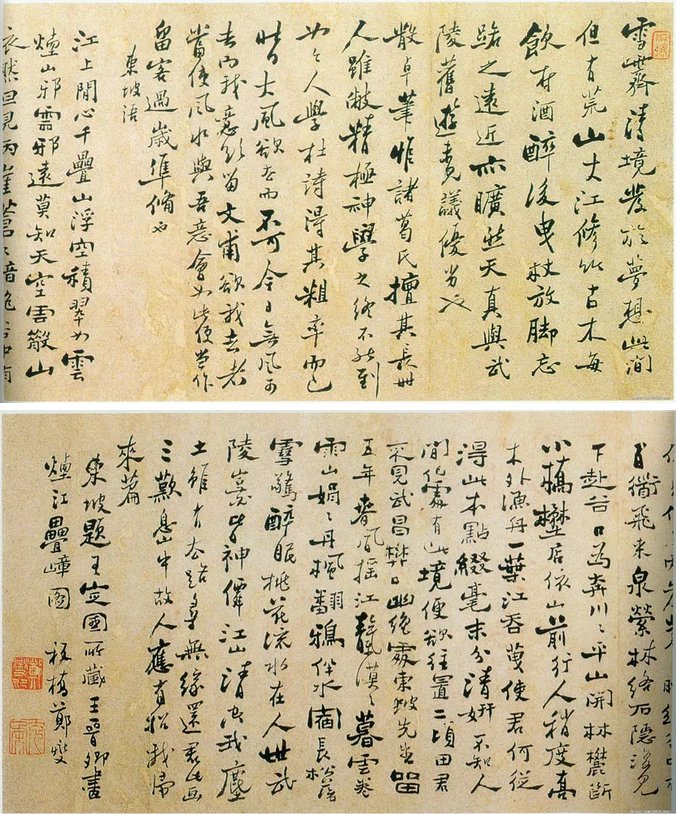 雪齋清境發於夢想此間
但有荒山大江修竹古木每
飲村酒醉後曳杖放脚忘
路之遠近亦曠然天真與武
陵舊遊未議優劣也
散卓筆惟諸葛氏擅其長世
人雖倣精極神學之終不能到
如人學杜詩得其粗率而已
昨日大風欲去而不可今日無風可
去而我意欲留文甫欲我去者
當使風水與吾意會如此便當作
留客過歲準備也
東坡語
江上閒心千疊山浮空積翠如雲
煙山邪雲邪遠莫知天空雲散山
依然但見兩崖蒼蒼暗絕谷中有
百衜飛來泉縈林絡石隱復見
下赴谷口為奔川川平山開林麓斷
小橋野店依山前行人稍度喬
木外漁舟一葉江吞使君何從
得此本點綴毫末分清妍不知人
間何處有此境便欲往置二頃田君
不見武昌樊口幽絕處東坡先生留
五年春風搖江靜漠漠暮雲卷
雨山娟娟丹楓翻鴉伴水宿長松落
雪驚醉眠桃花流水在人世武
陵豈皆神僊江山清空我塵
土雖有去路尋無緣還君此畫
三歎息山中故人應有招我歸
來篇
東坡題王定國所藏王晉卿畫
煙江疊嶂圖 板橋鄭燮